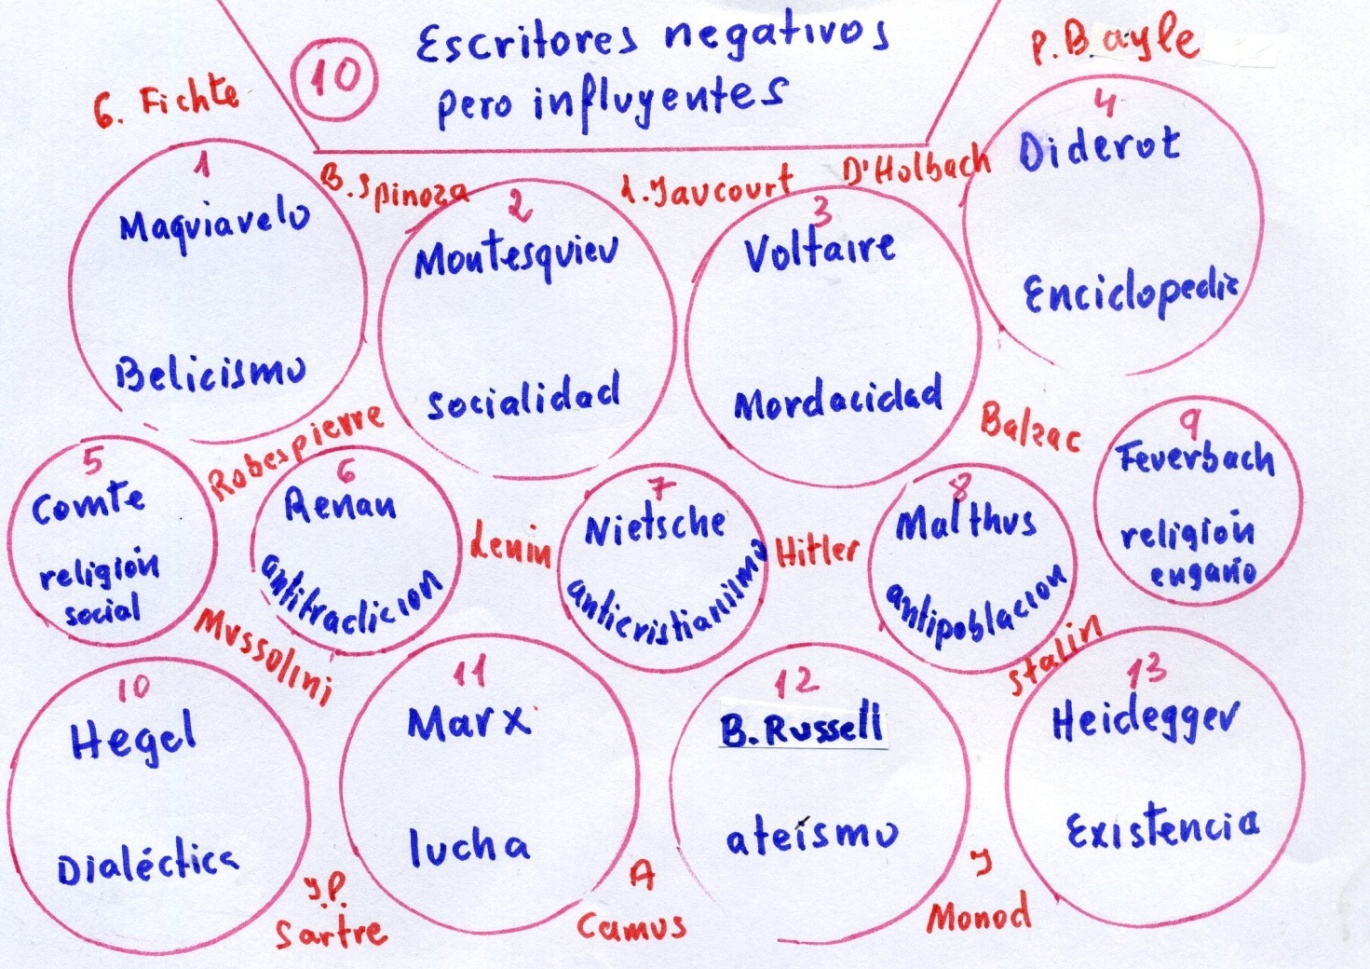 10
Escritores negativos
pero influyentes
G. Fichte
P. Bayle
B. Spinoza
L. Jaucourt
D'Holbach
1
Maquiavelo
Belicismo
2
Montesquieu
Socialidad
3
Voltaire
Mordacidad
4
Diderot
Enciclopedia
Robespierre
Balzac
5
Comte
religión
social
6
Renan
antitradicion
Lenin
7
Nietsche
anticristianismo
Hitler
8
Malthus
antipoblacion
9
Feuerbach
religión
engaño
Mussolini
Stalin
10
Hegel
Dialéctica
11
Marx
lucha
12
B. Russell
ateísmo
13
Heidegger
Existencia
J.P.
Sartre
A
Camus
J
Monod